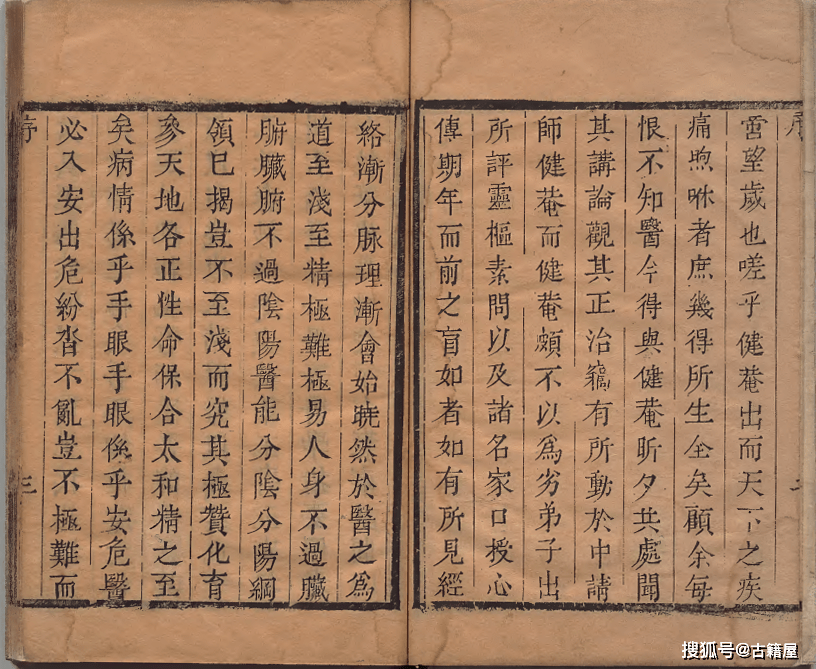 序
雲望歲也嗟乎健菴出而天下之疾
痛喣咻者庶幾得所生全矣顧余每
恨不知醫今得與健菴昕夕共處聞
其講論觀其正治竊有所動於中請
師健菴而健菴頗不以為劣弟子出
所評靈樞素問以及諸名家口授心
傳期年而前之盲如者如有所見經
絡漸分脉理漸會始曉然於醫之為
道至淺至精極難極易人身不過臟
腑臟腑不過陰陽醫能分陰分陽綱
領已揭豈不至淺而究其極贊化育
參天地各正性命保合太和精之至
矣病情係乎手眼手眼係乎安危醫
必入安出危紛沓不亂豈不極難而
序
三
搜狐号@古籍屋